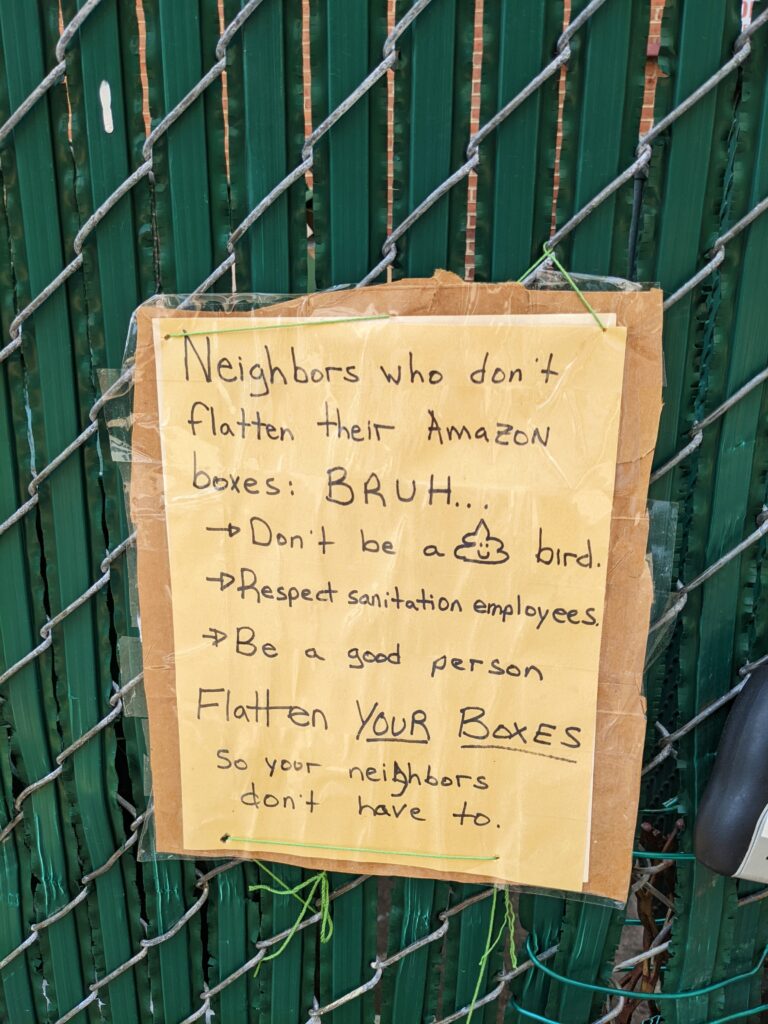 Neighbors who don't
flatten their Amazon
boxes: BRUH...
→ Don't be a 💩 bird.
→ Respect sanitation employees.
→ Be a good person
Flatten YOUR BOXES
So your neighbors
don't have to.